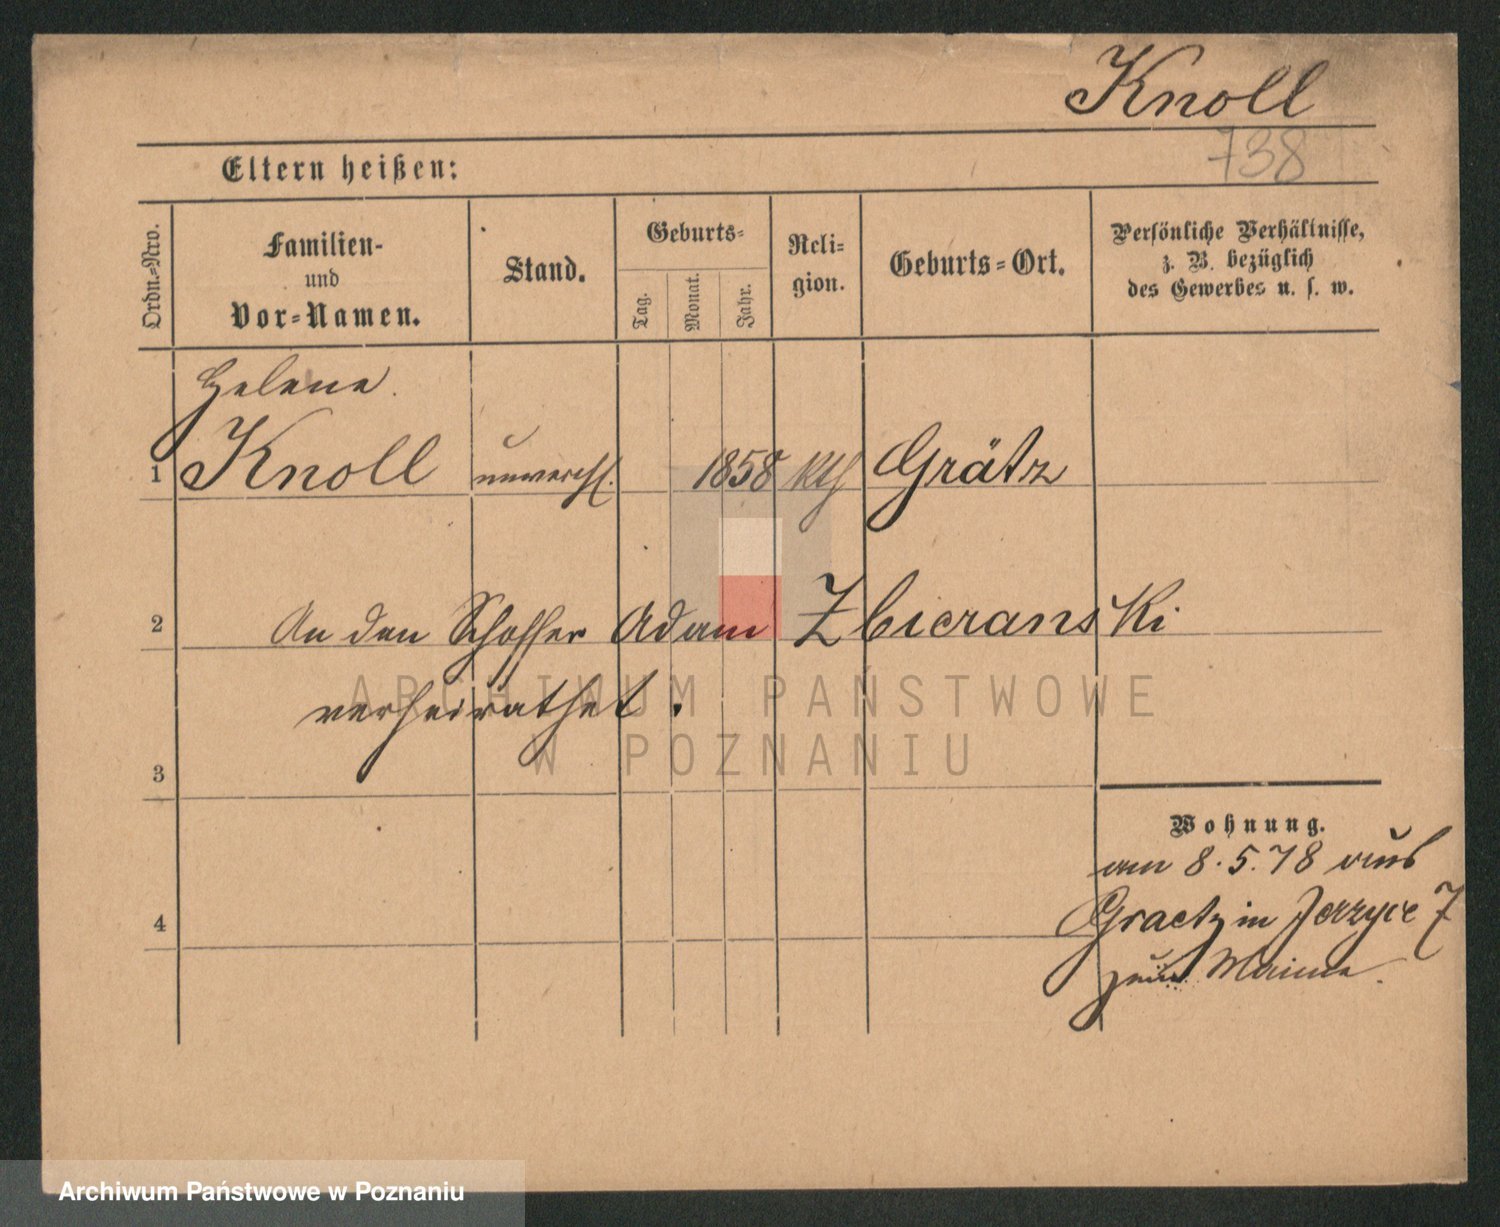 Knoll
738
Eltern heißen:
Ordn.=Nro.
Familien-
und
Vor=Namen.
Stand.
Geburts=
Tag.
Monat.
Jahr.
Reli=
gion.
Geburts=Ort.
Persönliche Verhältnisse,
z. B. bezüglich
des Gewerbes u. s. w.
Helene.
1 Knoll unverehl. 1858 kth Grätz
2 An den Schaffer Adam Zbieranski
verheirathet.
ARCHIWUM PAŃSTWOWE
W POZNANIU
3
Wohnung.
am 8.5.78 aus
4 Graetz in Jerzyce 7
Archiwum Państwowe w Poznaniu